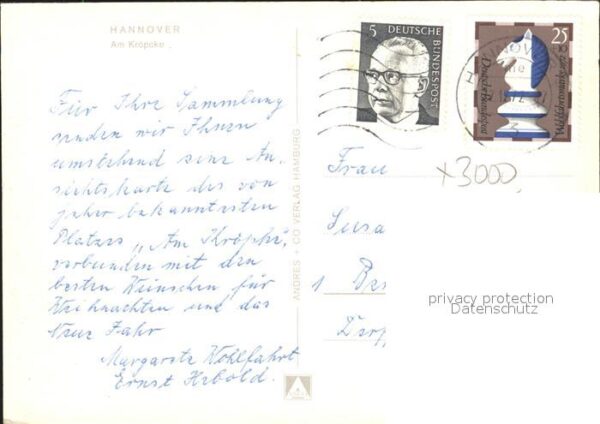 HANNOVER
Am Kröpcke
Für Ihre Sammlung
senden wir Ihnen
umstehend eine An-
sichtskarte des von
jeher bekanntesten
Platzes "Am Kröpke",
verbunden mit den
besten Wünschen für
Weihnachten und das
Neue Jahr
Margarete Wohlfahrt
Ernst
ANDRES + CO VERLAG HAMBURG
5
DEUTSCHE
BUNDESPOST
25
Deutsche Bundespost
Wohlfahrtsmarke
HANNOVER
3
x3000
Frau
1
privacy protection
Datenschutz